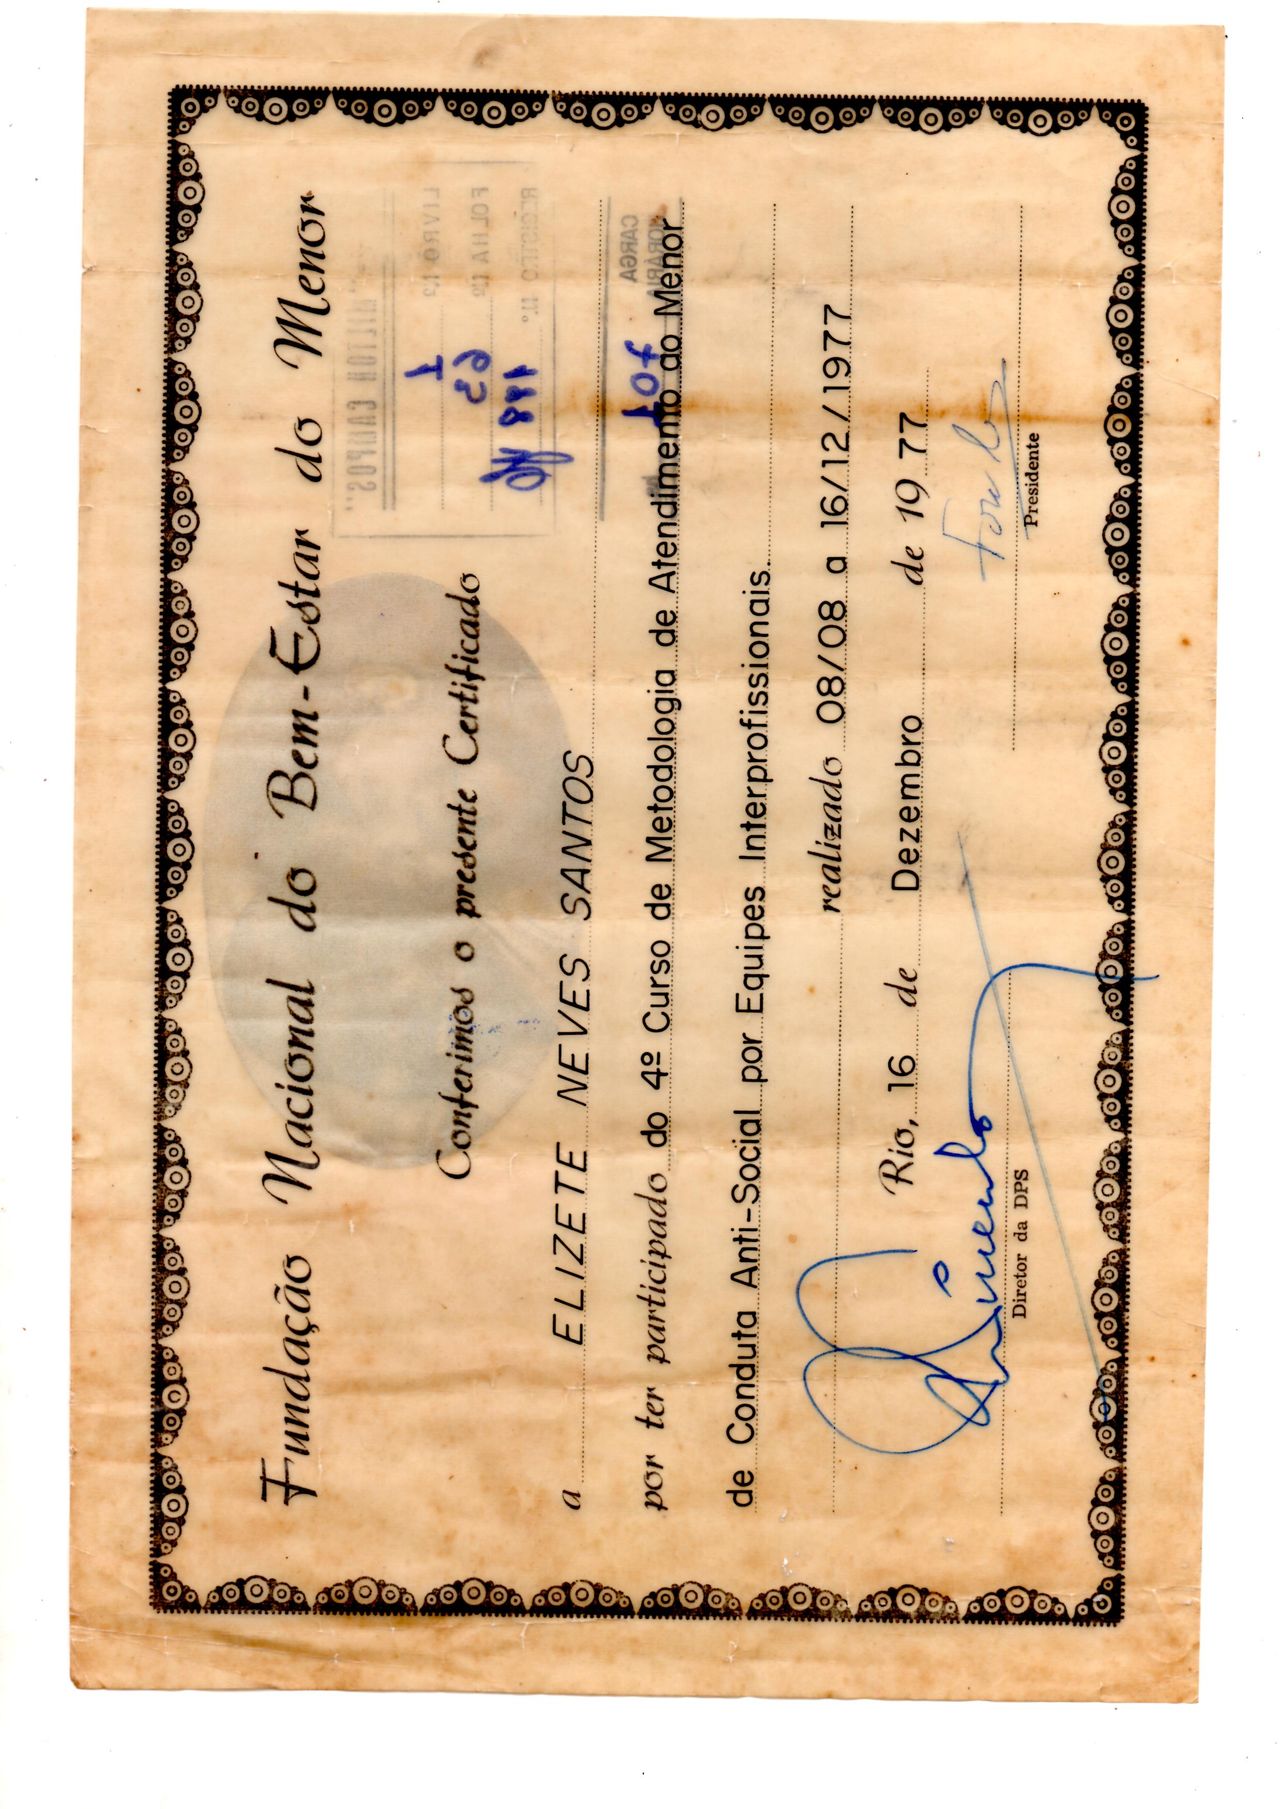 Fundação Nacional do Bem-Estar do Menor
"MILTON CAMPOS"
LIVRO nº 1
FOLHA nº 63
REGISTRO n.º 188
Conferimos o presente Certificado
a ELIZETE NEVES SANTOS
CARGA
HORÁRIA
por ter participado do 4º Curso de Metodologia de Atendimento ao Menor
de Conduta Anti-Social por Equipes Interprofissionais.
realizado 08/08 a 16/12/1977
Rio, 16 de Dezembro de 1977
Diretor da DPS
Presidente